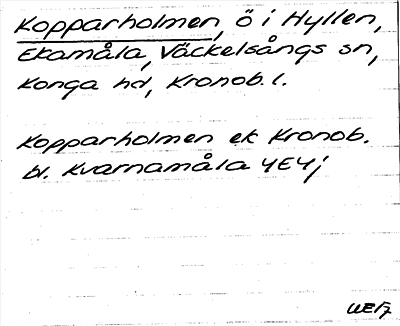 Kopparholmen, ö i Hyllen,
Ekamåla, Väckelsångs sn,
Konga hd, Kronob. l.
Kopparholmen ek Kronob.
bl. Kvarnamåla 4E4j